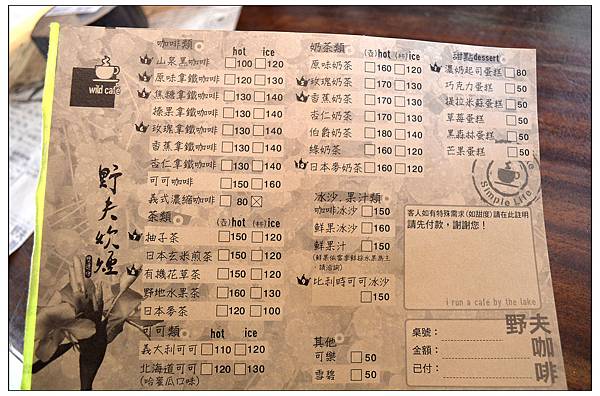 wild café
野夫炊煙
咖啡類 hot ice
山泉黑咖啡 □100 □120
原味拿鐵咖啡 □120 □130
焦糖拿鐵咖啡 □130 □140
榛果拿鐵咖啡 □130 □140
玫瑰拿鐵咖啡 □130 □140
香蕉拿鐵咖啡 □130 □140
杏仁拿鐵咖啡 □130 □140
可可咖啡 □150 □160
義式濃縮咖啡 □ 80 ☒
茶類 (壺)hot (杯)ice
柚子茶 □150 □120
日本玄米煎茶 □150 □120
有機花草茶 □150 □120
野地水果茶 □160 □130
日本麥茶 □120 □100
可可類 hot ice
義大利可可 □110 □120
北海道可可 □120 □130
(哈蜜瓜口味)
奶茶類 (壺)hot (杯)ice
原味奶茶 □160 □120
玫瑰奶茶 □170 □130
香蕉奶茶 □170 □130
杏仁奶茶 □170 □130
伯爵奶茶 □180 □140
綠奶茶 □160 □120
日本麥奶茶 □160 □120
冰沙.果汁類
咖啡冰沙 □150
鮮果冰沙 □160
鮮果汁 □150
(鮮果依當季鮮採水果為主
,請洽詢)
比利時可可冰沙
□150
其他
可樂 □50
雪碧 □50
甜點dessert
濃奶起司蛋糕 □80
巧克力蛋糕 □50
提拉米蘇蛋糕 □50
草莓蛋糕 □50
黑森林蛋糕 □50
芒果蛋糕 □50
Simple Life
客人如有特殊需求(如甜度)請在此註明
請先付款,謝謝您!
i run a cafe by the lake
桌號:
金額:
已付:
野夫咖啡